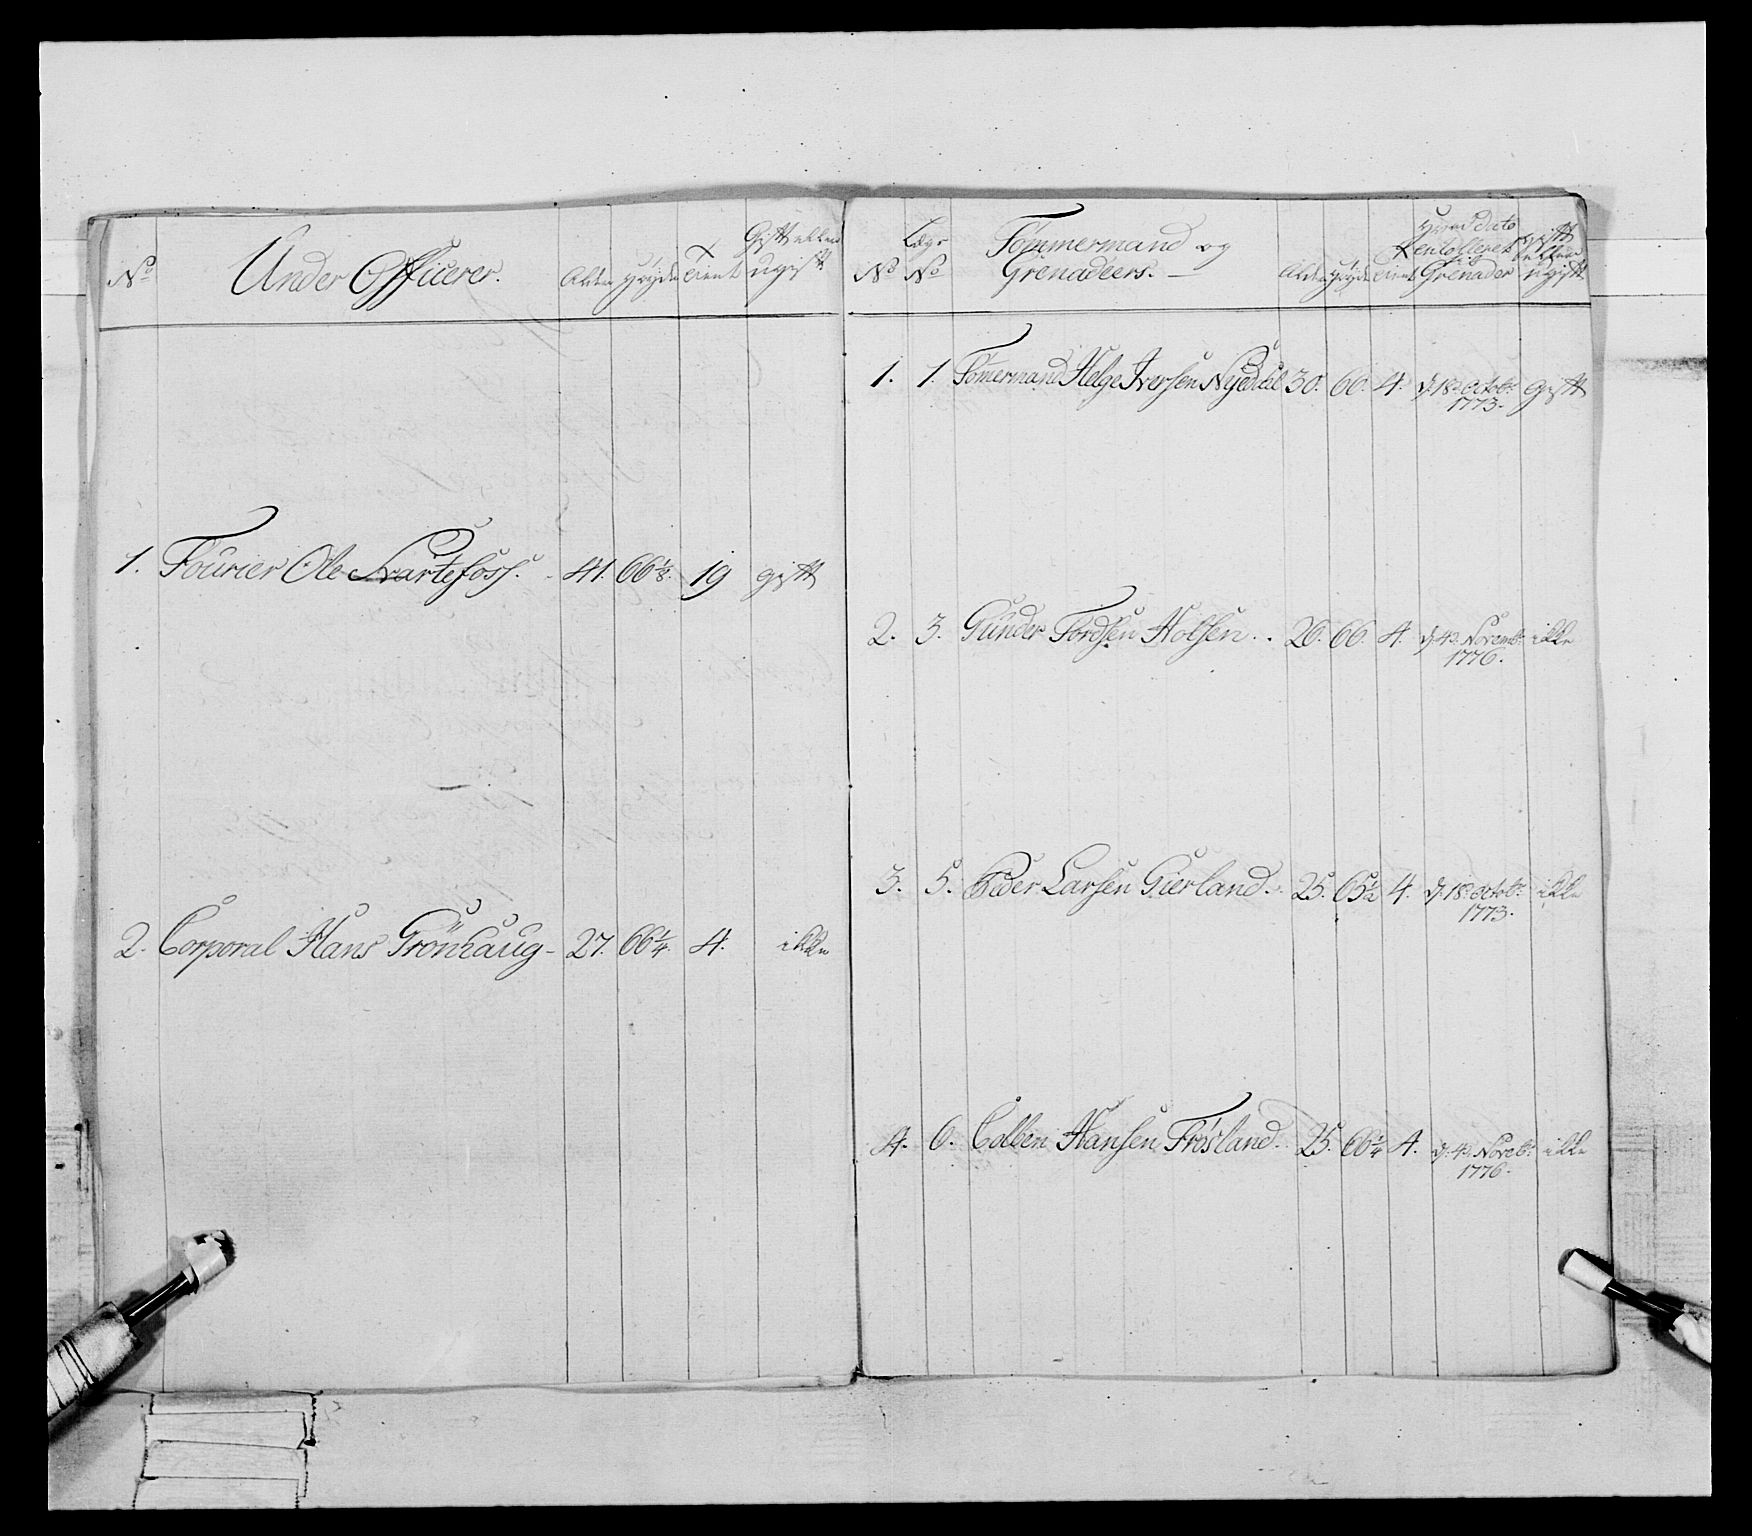 No
Under Officerer.
Alder
Høyde
tient
Gift eller
ugift
1. Fourier Ole Svartefoss. 41. 66 1/8. 19 gift
2. Corporal Hans Grönhaug 27. 66 1/4. 4. ikke
No
Lægs
No
Tömmermand og
Grenadeers.
Alder
Høyde
tient
Hvad dato
enrolleret
Grenader
gift
eller
ugift
1. 1. Tömermand Helge Iversen Nyedal 30. 66. 4. d. 18. octobr. gift
1773.
2. 3. Gunder Tordsen Holsen 26. 66. 4. d. 4. Novembr. ikke
1776.
3. 5. Peder Larsen Gierland. 25. 65 1/2 4. d. 18. octobr. ikke
1773.
4. 6. Colben Hansen Frösland. 25. 66 1/4 4. d. 4. Novebr. ikke
1776.